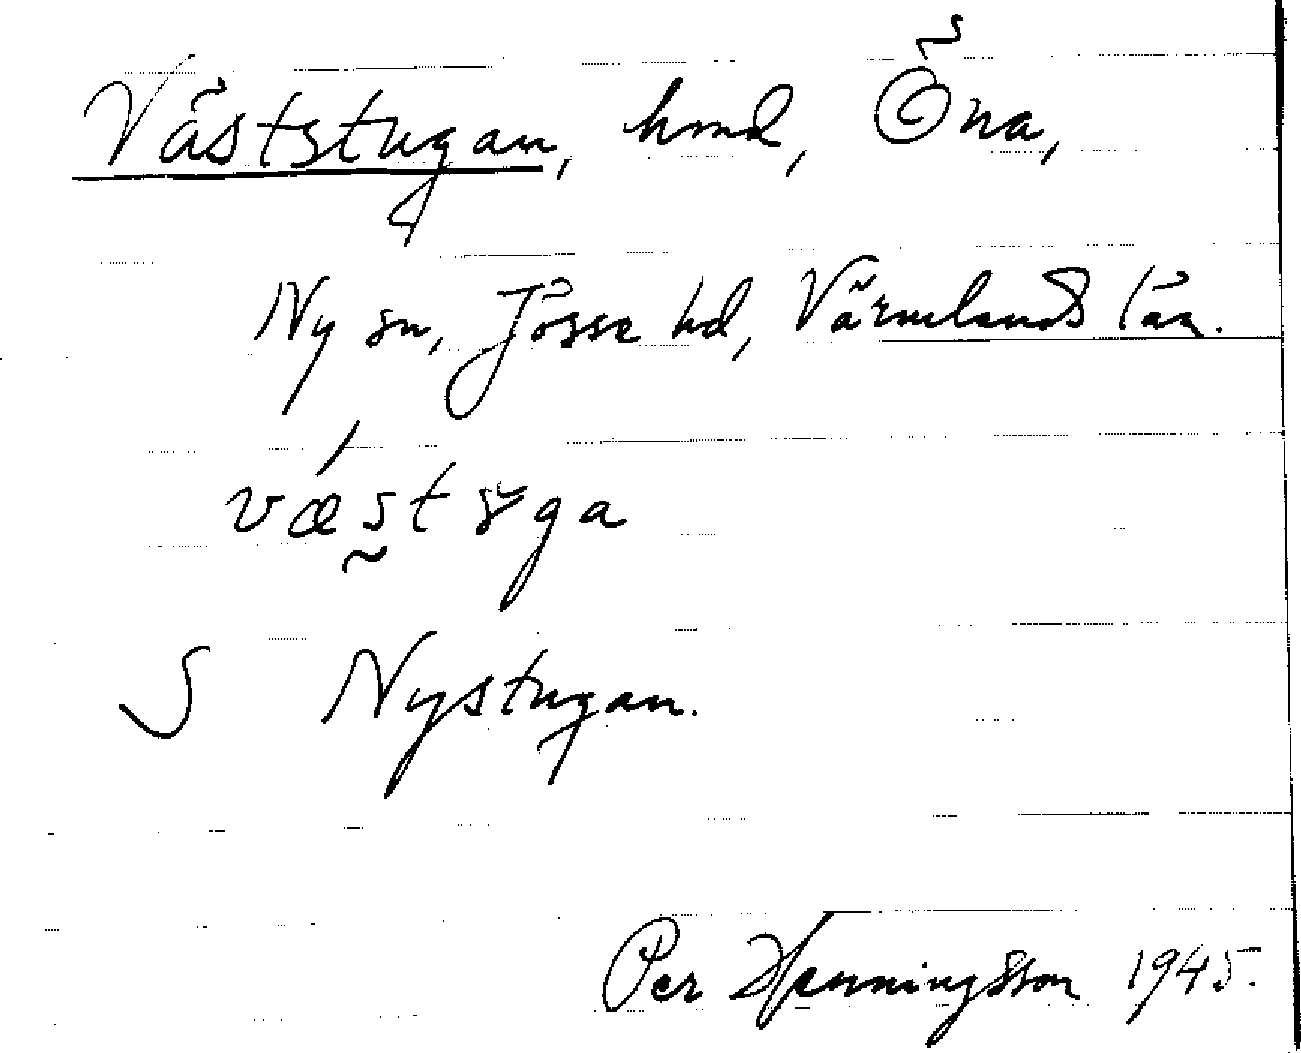 Väststugan, hmd, Öna,
Ny sn, Jösse hd, Värmlands län.
S Nystugan.
Per Henningsson 1945.